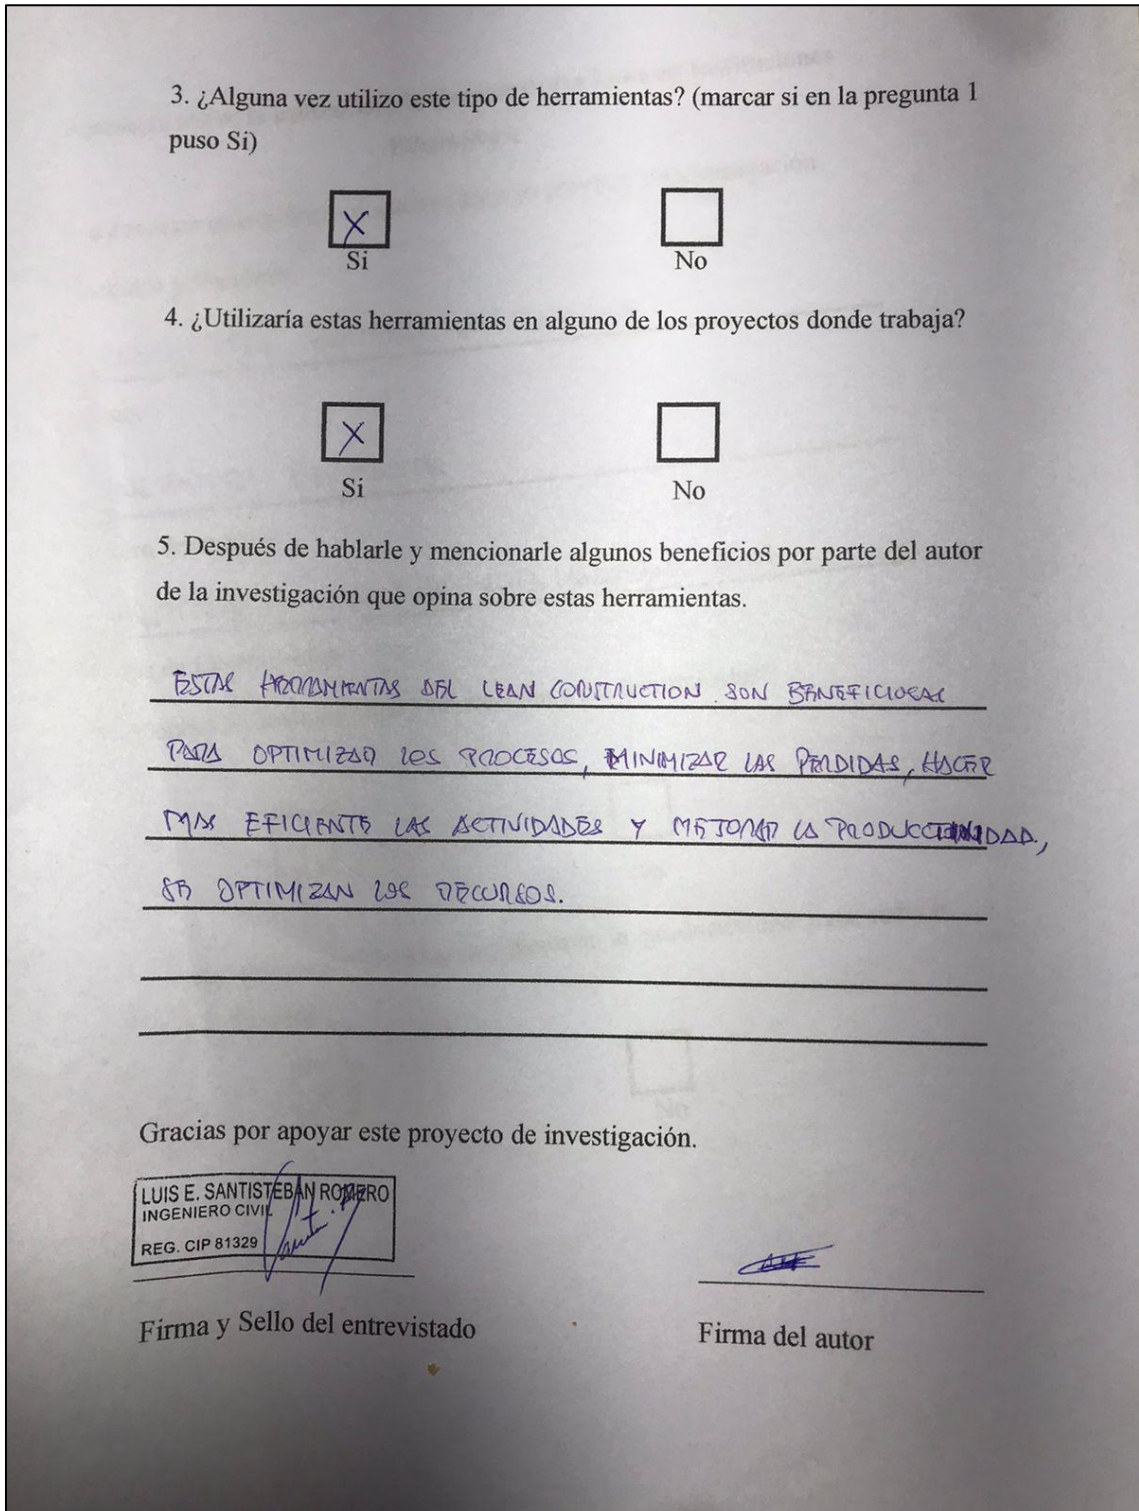 3. ¿Alguna vez utilizo este tipo de herramientas? (marcar si en la pregunta 1
puso Si)
X
Si No
4. ¿Utilizaría estas herramientas en alguno de los proyectos donde trabaja?
X
Si No
5. Después de hablarle y mencionarle algunos beneficios por parte del autor
de la investigación que opina sobre estas herramientas.
ESTAS HERRAMIENTAS DEL LEAN CONSTRUCTION SON BENEFICIOSAS
PARA OPTIMIZAR LOS PROCESOS, MINIMIZAR LAS PERDIDAS, HACER
MAS EFICIENTE LAS ACTIVIDADES Y MEJORAR LA
SE OPTIMIZAN LOS RECURSOS.
No
Gracias por apoyar este proyecto de investigación.
LUIS E. SANTISTEBAN ROMERO
INGENIERO CIVIL
REG. CIP 81329
Firma y Sello del entrevistado Firma del autor